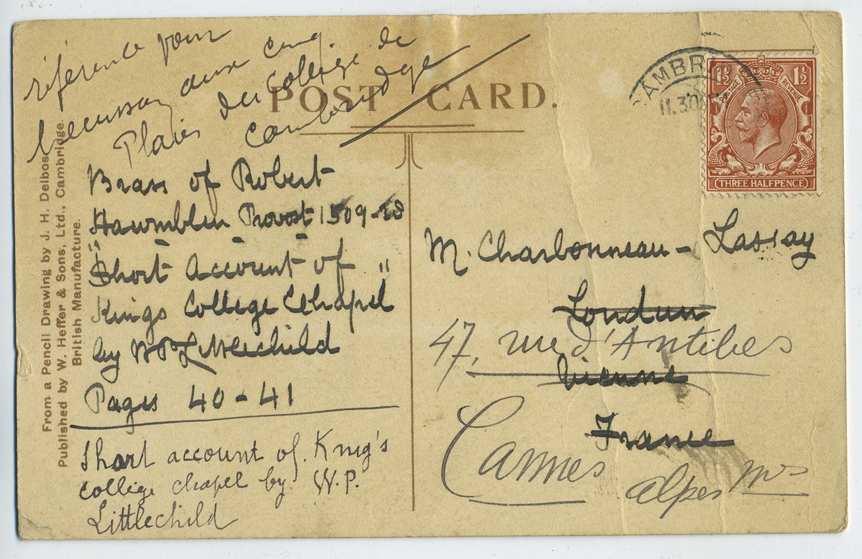 référence pour
l'écusson aux cinq
Plaies du Collège de
Cambridge
POST CARD.
CAMBR
11.30
1½ 1½
THREE HALFPENCE
From a Pencil Drawing by J. H. Delbos
Published by W. Heffer & Sons, Ltd., Cambridge.
British Manufacture.
Brass of Robert
Hawmblen Provost 1509-28
"Short Account of
Kings College Chapel"
by W P Littlechild
Pages 40-41
Short account of King's
college chapel by W.P.
Littlechild
M. Charbonneau-Lassay
Loudun
47, rue d'Antibes
Vienne
France
Cannes
Alpes Mes